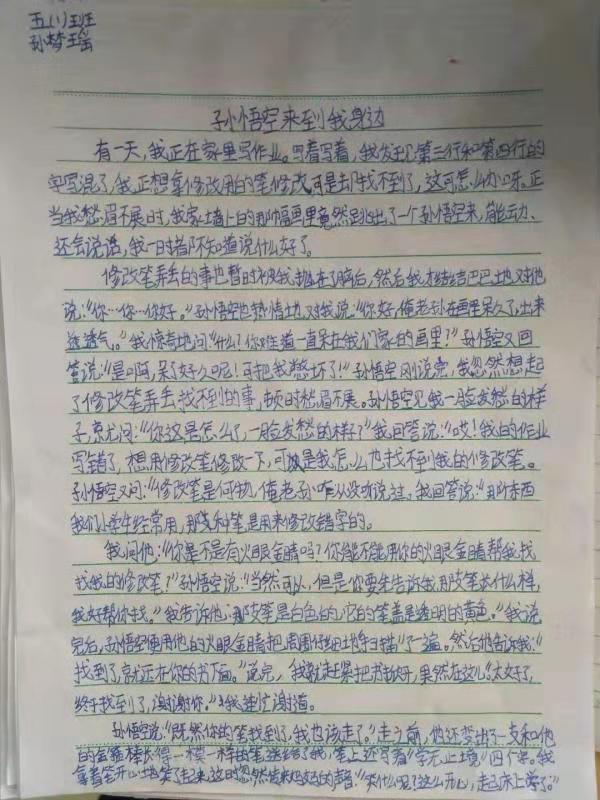 五(1)班
孙梦瑶
孙悟空来到我身边
有一天,我正在家里写作业。写着写着,我发现第三行和第四行的
字写混了,我正想拿修改用的笔修改,可是却找不到了,这可怎么办呀。正
当我愁眉不展时,我家墙上的那幅画里竟然跳出了一个孙悟空来,能动、
还会说话,我一时都不知道说什么好了。
修改笔弄丢的事也暂时被我抛在了脑后,然后我才结结巴巴地对他
说:“你…你…你好。”孙悟空也热情地对我说:“你好,俺老孙在画里呆久了,出来
透透气。”我惊奇地问“什么?你难道一直呆在我们家的画里?”孙悟空又回
答说:“是啊,呆了好久呢!可把我憋坏了!”孙悟空刚说完,我忽然想起
了修改笔弄丢,找不到的事,顿时愁眉不展。孙悟空见我一脸发愁的样
子,忙问:“你这是怎么了,一脸发愁的样子?”我回答说:“哎!我的作业
写错了,想用修改笔修改一下,可是我怎么也找不到我的修改笔。
孙悟空又问:“修改笔是何物,俺老孙咋从没听说过。我回答说:“那东西
我们小学生经常用,那支种笔是用来修改错字的。
我问他:“你是不是有火眼金睛吗?你能不能用你的火眼金睛帮我找
找我的修改笔?”孙悟空说:“当然可以,但是你要先告诉我那支笔长什么样,
我好帮你找。”我告诉他:“那支笔是白色的,它的笔盖是透明的黄色。”我说
完后,孙悟空便用他的火眼金睛把周围仔细地“扫描”了一遍。然后他告诉我:“
找到了,就还在你的书下面。”说完,我就赶紧把书挪开,果然在这儿“太好了,
终于找到了,谢谢你。”我连忙谢道。
孙悟空说:“既然你的笔找到了,我也该走了。”走之前,他还变出了一支和他
的金箍棒长得一模一样的笔送给了我,笔上还写着“学无止境”四个字。我
拿着笔开心地笑了起来,这时忽然传来妈妈的声音:“笑什么呢?这么开心,起床上学了。”